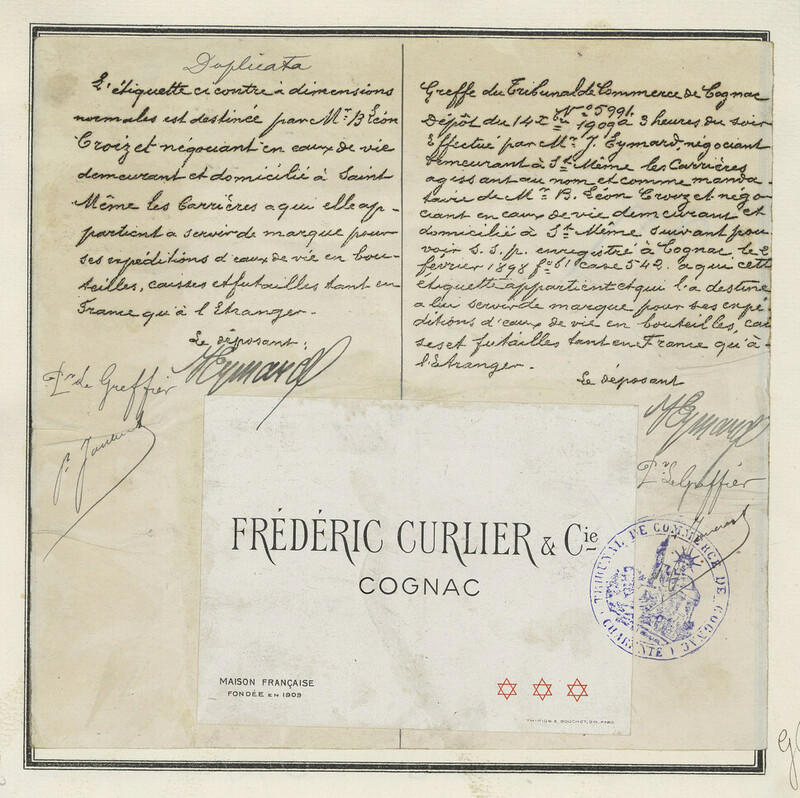 Duplicata
L'étiquette ci contre à dimensions
normales est destinée par Mr. B. Léon
Croizet négociant en eaux de vie
demeurant et domicilié à Saint
Même les Carrières a qui elle ap-
partient a servir de marque pour
ses expéditions d'eaux de vie en bou-
teilles, caisses et futailles tant en
France qu'à l'Etranger.
Le déposant:
Pr. le Greffier
Greffe du Tribunal de Commerce de Cognac
No 5991.
Dépôt du 14 1909 à 3 heures du soir
Effectué par Mr. J. Eymard, négociant
demeurant à St. Même les Carrières
agissant au nom et comme manda-
taire de Mr. B. Léon Croizet négo-
ciant en eaux de vie demeurant et
domicilié à St. Même suivant pou-
voir s.s.p. enregistré à Cognac, le 2
février 1898 fo 51 case 542. à qui cette
étiquette appartient et qui l'a destine
a lui servir de marque pour ses expé-
ditions d'eaux de vie en bouteilles, cais
ses et futailles tant en France qu'à
l'Etranger.
Le déposant
Pr. Le Greffier
FRÉDÉRIC CURLIER & Cie
COGNAC
MAISON FRANÇAISE
FONDÉE EN 1909
TRIBUNAL DE COMMERCE DE COGNAC
(CHARENTE)